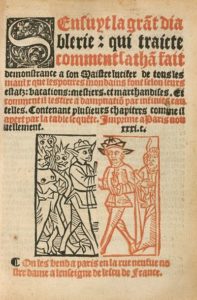 SEnsuyt la grãt dia
blerie: qui traicte
comment sathã fait
demonstrance a son Maistre lucifer de tous les
maulx que les poures mondains font selon leurs
estatz: vacations: mestiers. et marchandises. Et
comment il les tire a dampnatiõ par infinies cau
telles. Contenant plusieurs chapitres comme il
apert par la table sequẽte. Imprime a Paris nou
uellement.
On les vend a paris en la rue neufue no
stre dame a lenseigne de lescu de France.